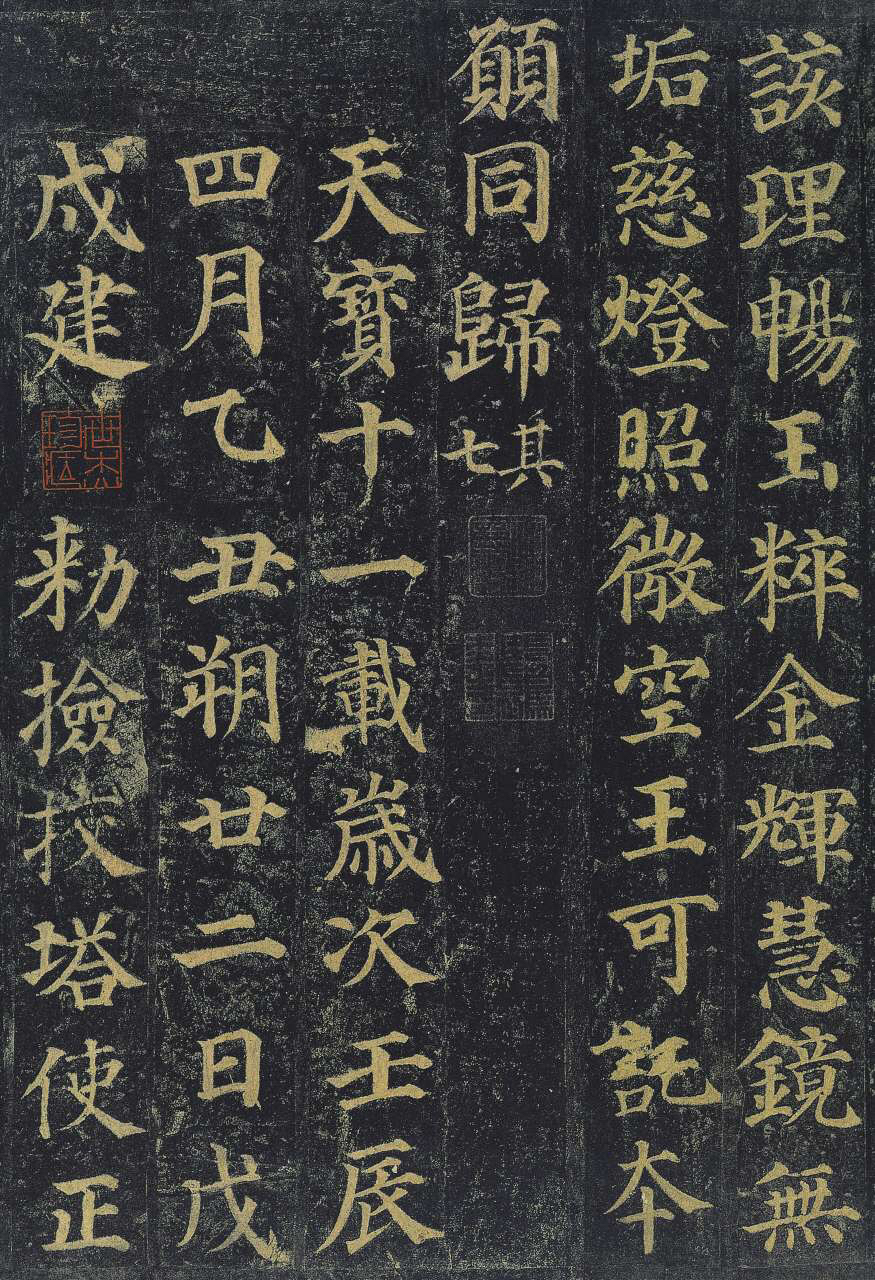 該理暢玉粹金輝慧鏡無
垢慈燈照微空王可託本
願同歸其七
天寶十一載歲次壬辰
四月乙丑朔廿二日戊
戌建
勑撿挍塔使正